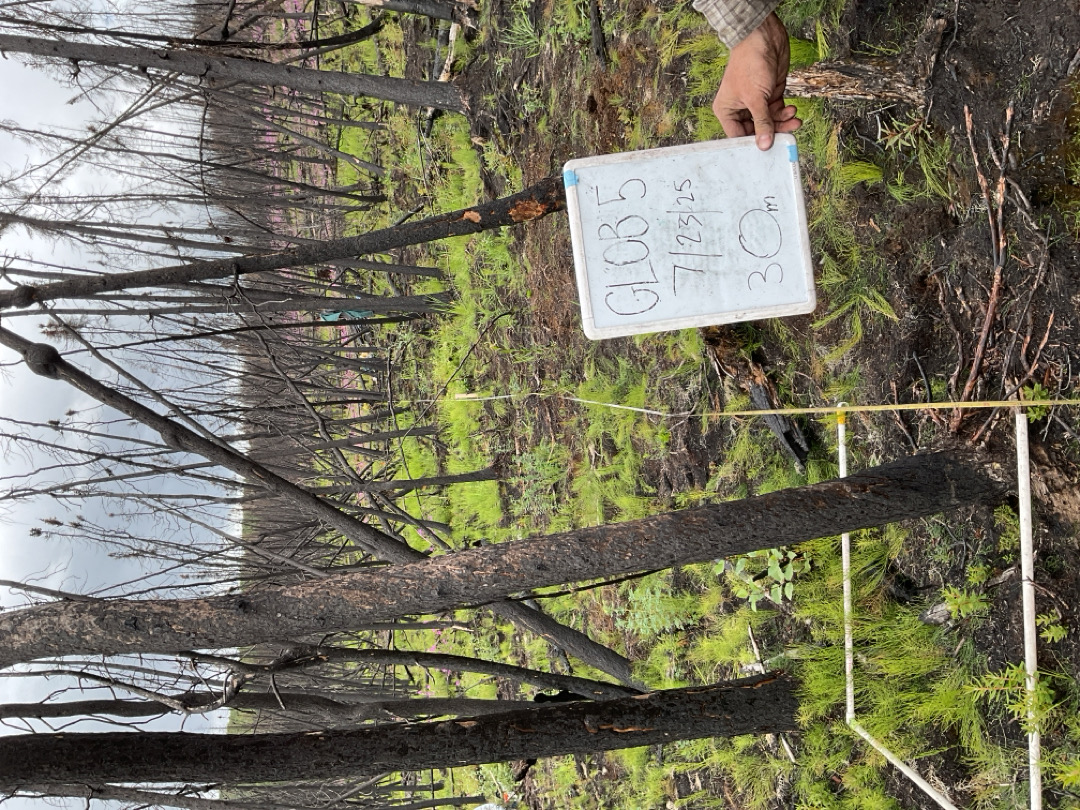 GLOB 5
7/23/25
30m